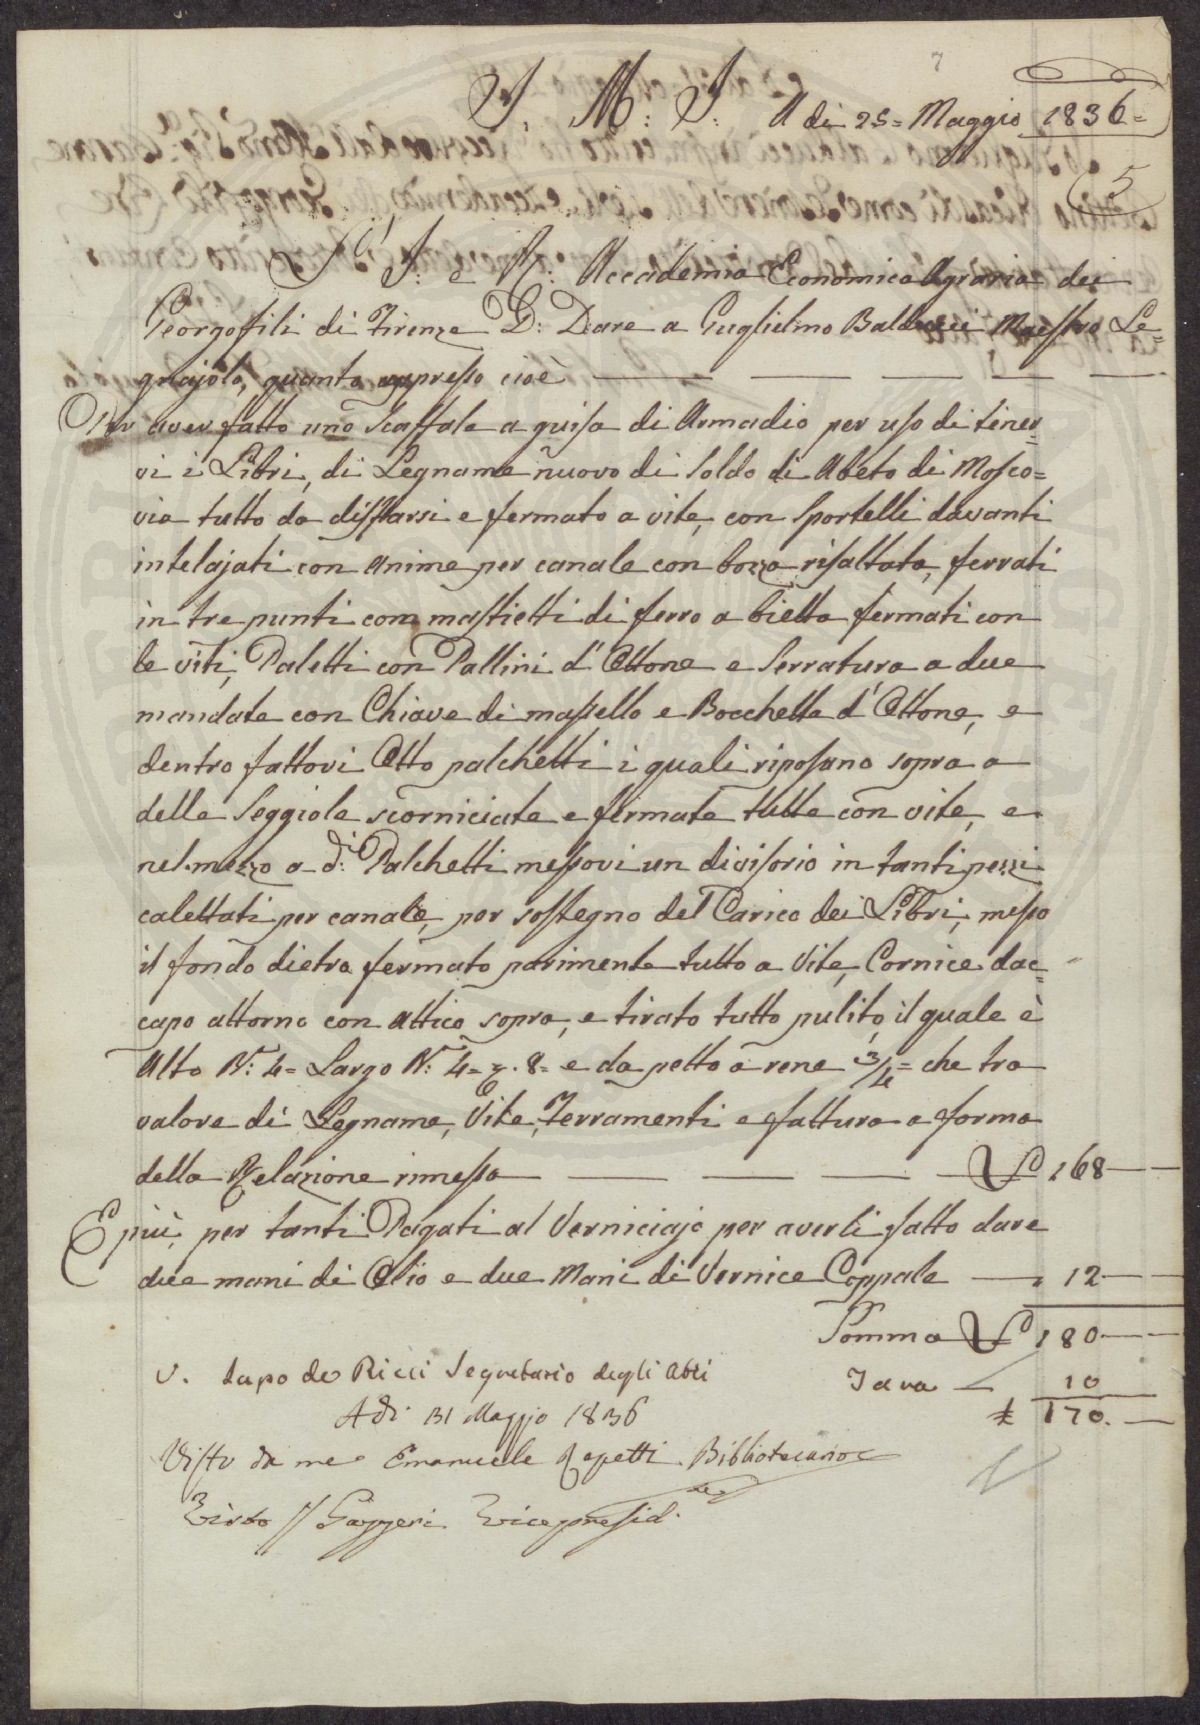 7
S. M. S. A di 25 = Maggio 1836 =
5
L' I: e R: Accademia Economica Agraria dei
Georgofili di Firenze D: Dare a Guglielmo Balducci Maestro Le=
gnajolo, quanto appresso cioè
Per aver fatto uno Scaffale a guisa di Armadio per uso di tener=
vi i Libri, di Legname nuovo di Soldo di Abeto di Mosco=
via tutto da disffarsi e fermato a vite, con Sportelli davanti
intelajati con anime per canale con bozza risaltata, ferrati
in tre punti com mastietti di ferro a bietta fermati con
le viti, Paletti con Pallini d'Ottone e Serratura a due
mandate con Chiave di massello e Bocchetta d'Ottone, e
dentro fattovi Otto palchetti i quali riposano sopra a
delle Seggiole scorniciate e fermate tutte con vite, e
nel mezzo a d.i Palchetti messovi un divisorio in tanti pezzi
calettati per canale, per sostegno del Carico dei Libri, messo
il fondo dietro fermato parimente tutto a Vite, Cornice dac=
capo attorno con attico sopra, e tirato tutto pulito, il quale è
Alto N: 4 = Largo N: 4 = 8 = e da petto a rene 3/4 = che tra
valore di Legname, Vite, Ferramenti e fattura a forma
della Relazione rimessa £ 168
E più, per tanti Pagati al Verniciajo per averli fatto dare
due mani di Olio e due Mani di Vernice Coppale 12
Somma £ 180
V. Lapo de Ricci Segretario degli Atti Tara 10
A di 31 Maggio 1836 £ 170.
Visto da me Emanuele Repetti Bibliotecario
Visto Gazzeri Vicepresid.te